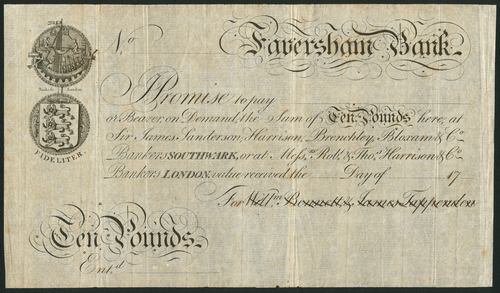 No
Faversham Bank
I Promise to pay
or Bearer, on Demand, the Sum of Ten Pounds here, at
Sir James Sanderson, Harrison, Brenchley, Bloxam & Co.
Bankers SOUTHWARK, or at Messrs. Robt. & Thos. Harrison & Co.
Bankers LONDON, value received the Day of 17
For Willm. Bennett & James Tappenden
FIDELITER.
Ten Pounds
Ent.d